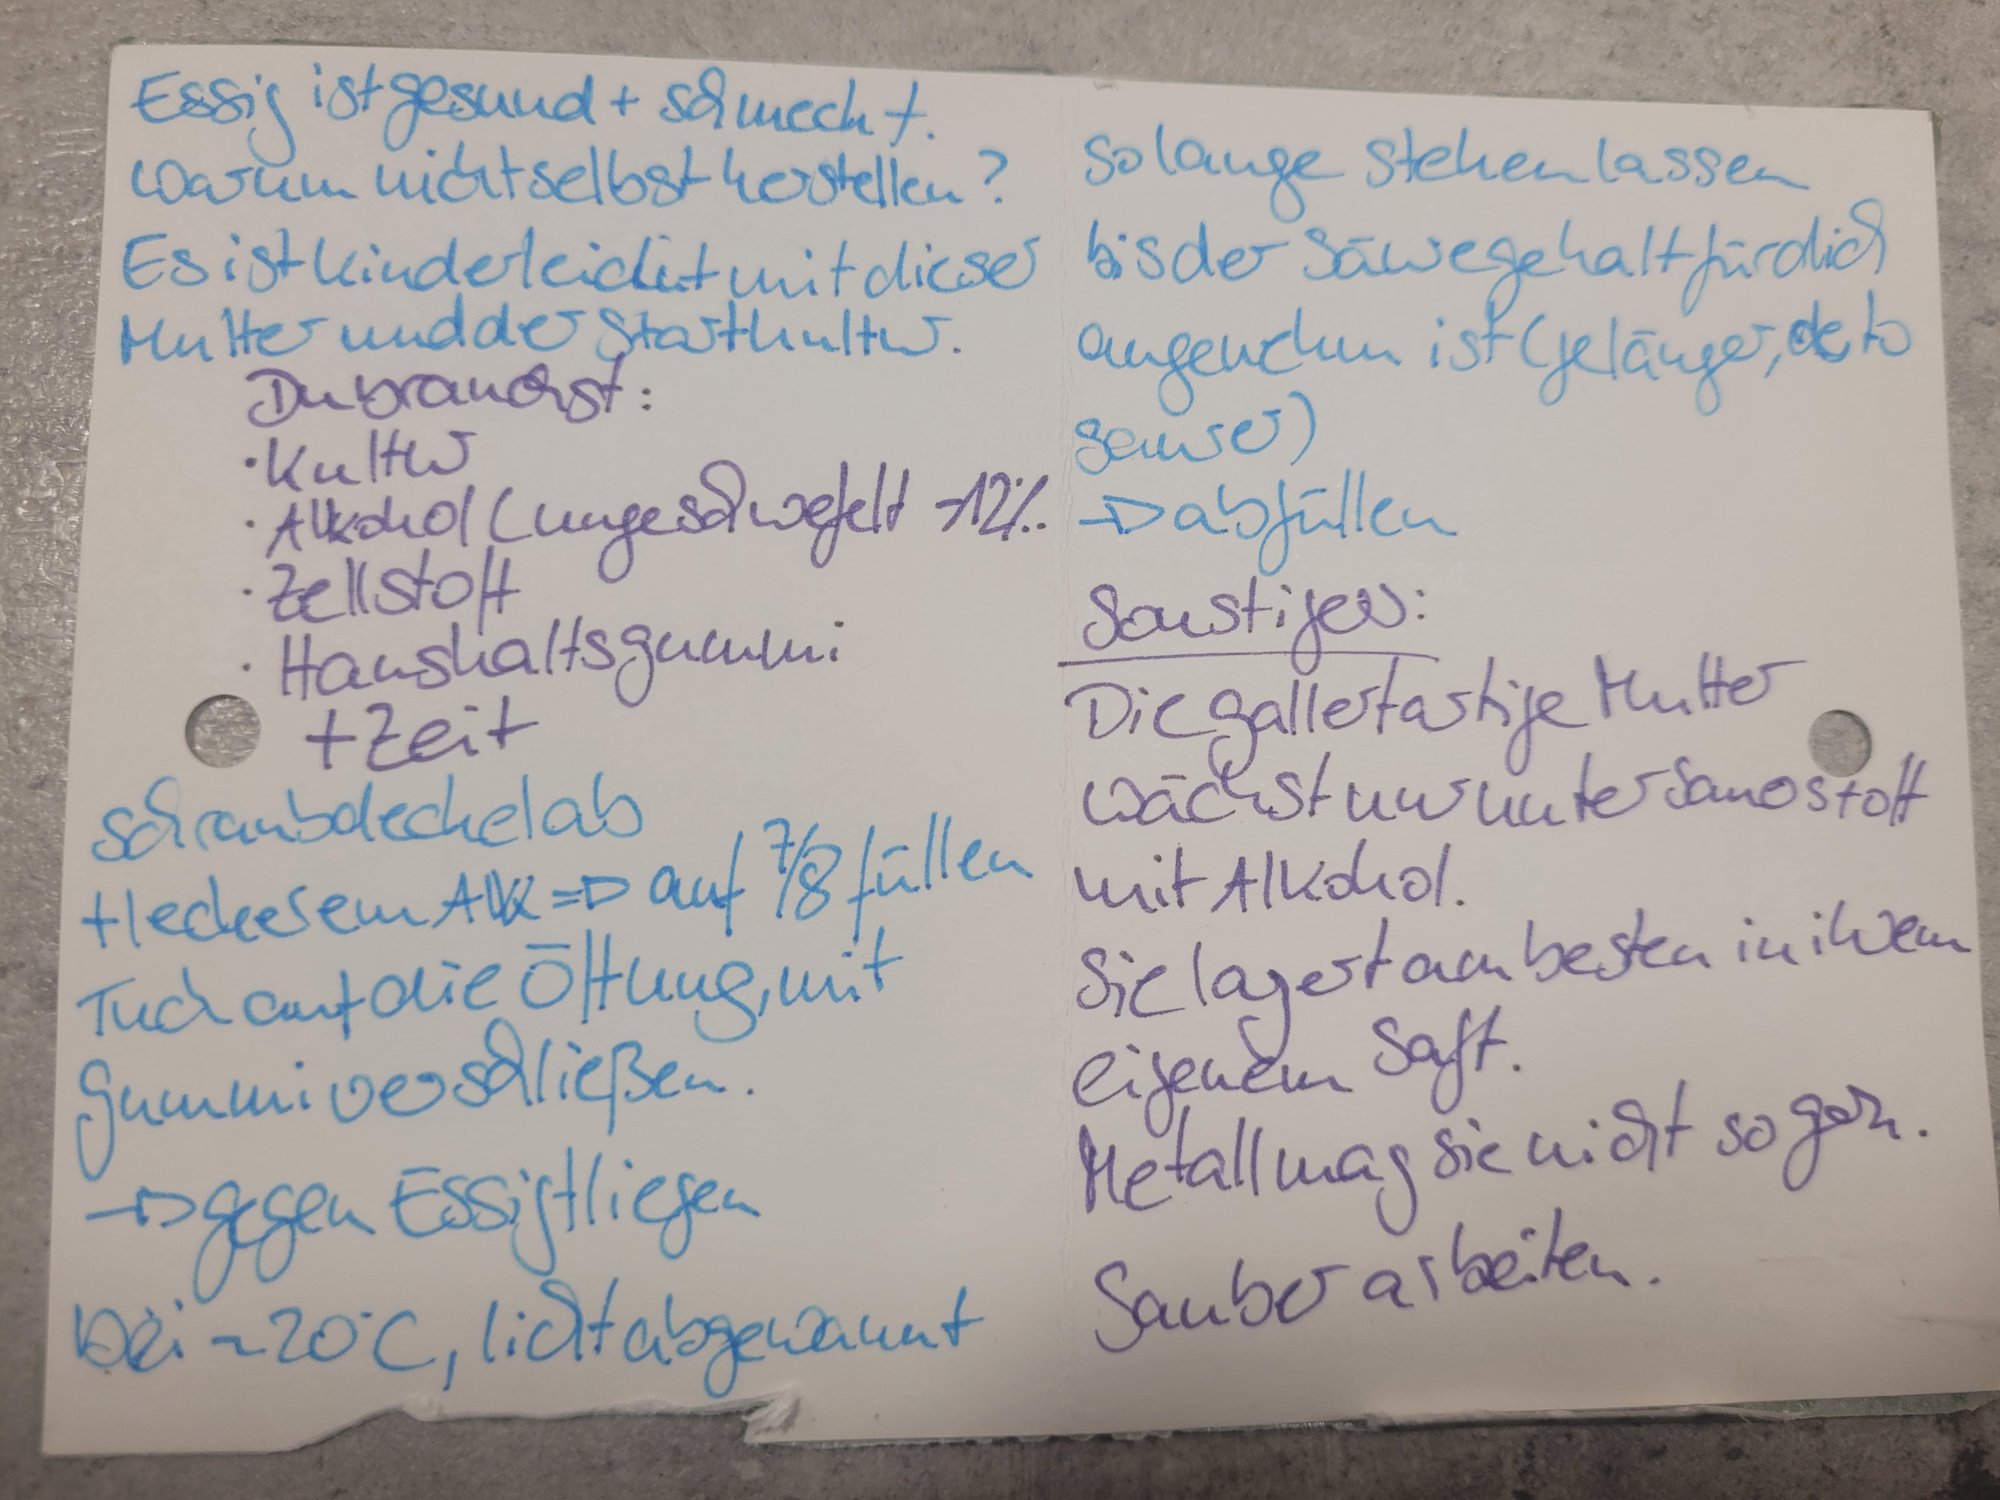 Essig ist gesund + schmeckt.
Warum nicht selbst herstellen?
Es ist kinderleicht mit dieser
Mutter und der Startkultur.
Du brauchst:
· Kultur
· Alkohol (ungeschwefelt ~12%
· Zellstoff
· Haushaltsgummi
+ Zeit
Schraubdeckel ab
+ leckerem Alk => auf 7/8 füllen
Tuch auf die Öffnung, mit
Gummi verschließen.
-> gegen Essigfliegen
bei ~20°C, lichtabgewannt
so lange stehen lassen
bis der Säuregehalt für dich
angenehm ist (je länger, desto
saurer)
-> abfüllen
Sonstiges:
Die gallertartige Mutter
wächst nur unter Sauerstoff
mit Alkohol.
Sie lagert am besten in ihrem
eigenem Saft.
Metall mag sie nicht so gern.
Sauber arbeiten.